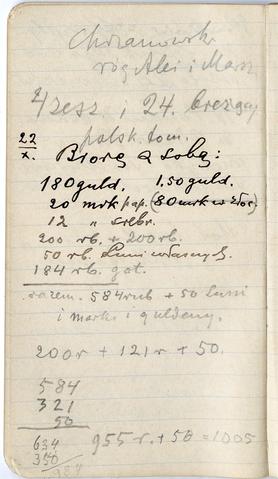 Chrzanowski
róg Alei i Marsz
4 zesz. i 24.
polsk. tom.
22
X.
Biorę z sobą:
180 guld. 1.50 guld.
20 mrk pap. (80 mrk w złoc)
12 " srebr.
200 rb. + 200 rb.
50 rb. Luni własnych.
184 rb. got.
razem. 584 rub + 50 Luni
i marki i guldeny.
200 r + 121 r + 50.
584
321
50
634 955 r. + 50 = 1005
350
984